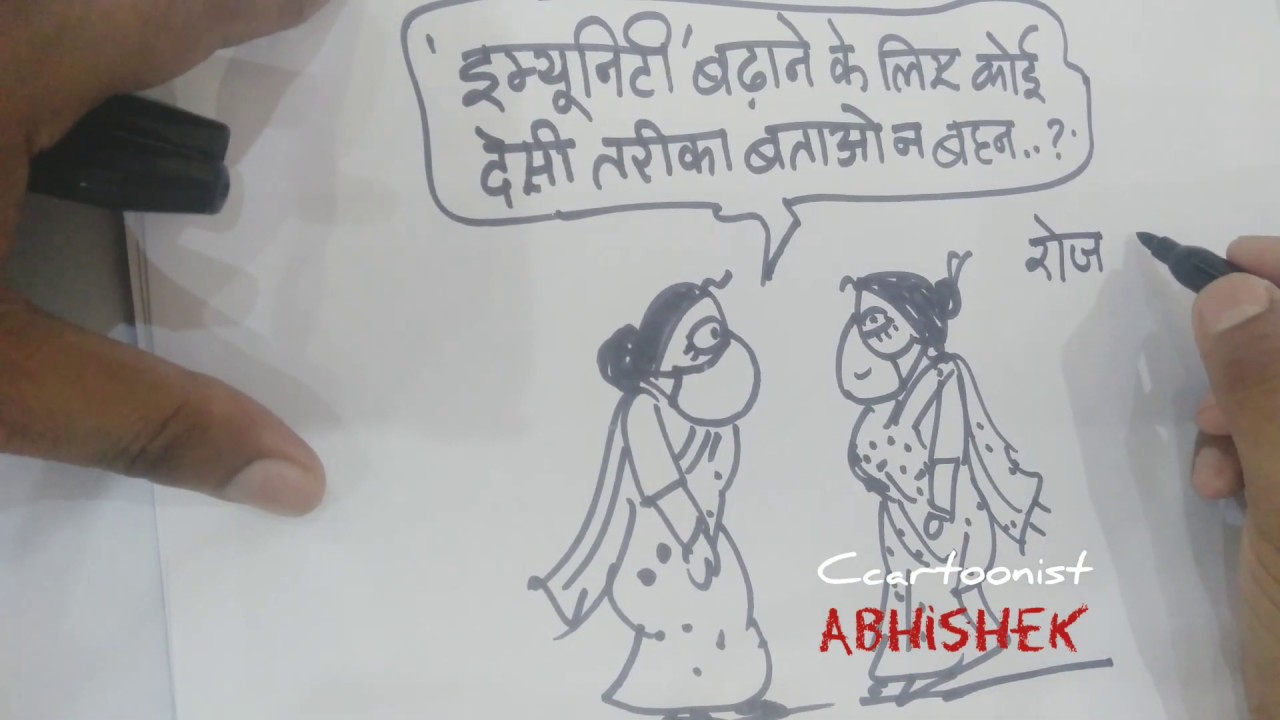 'इम्यूनिटी' बढ़ाने के लिए कोई
देसी तरीका बताओ न बहन..?
रोज
Ccartoonist
ABHiSHEK